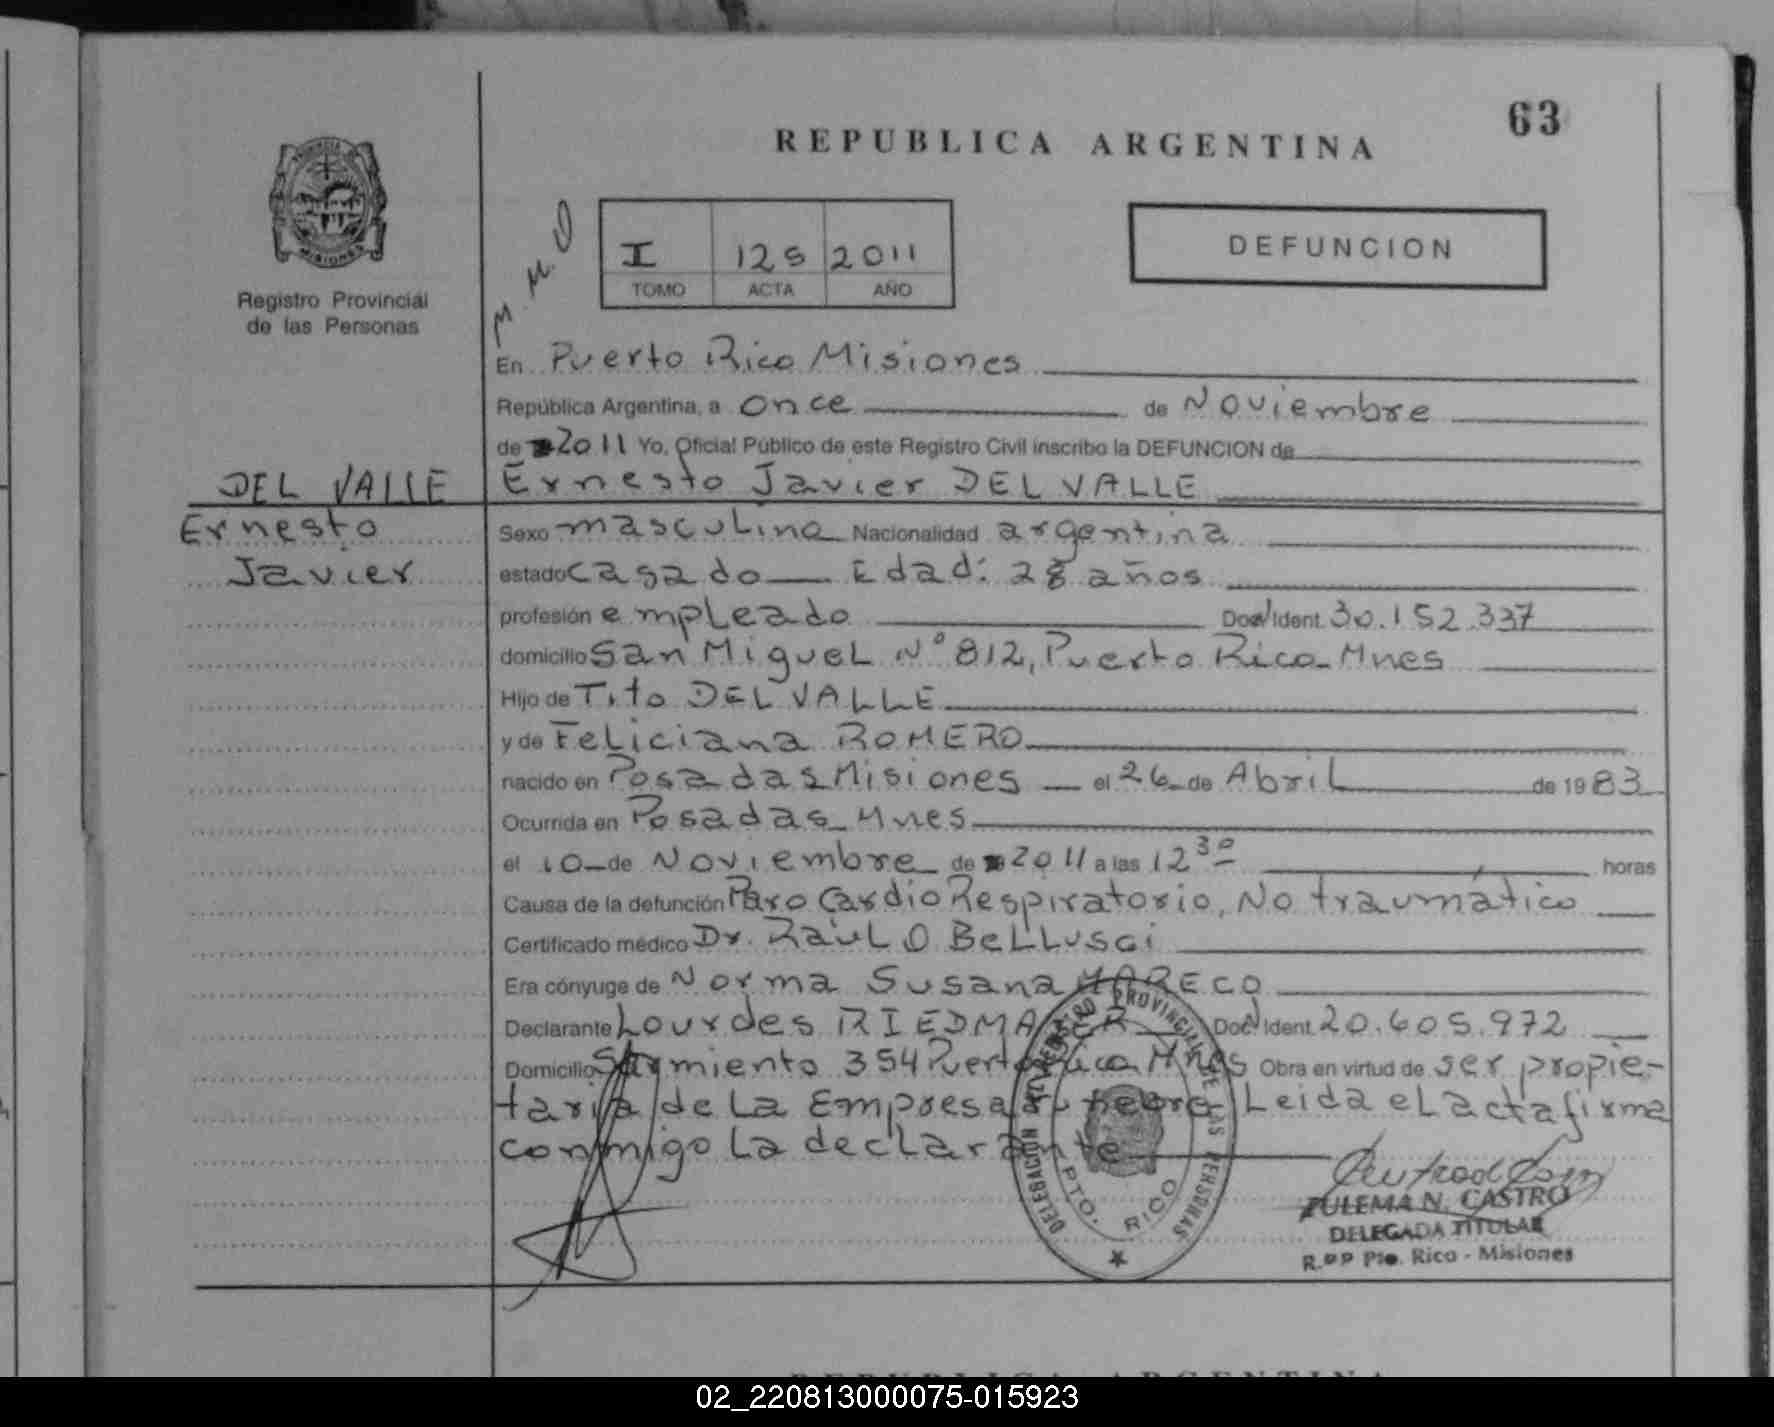 63
REPUBLICA ARGENTINA
PROVINCIA DE
MISIONES
Registro Provincial
de las Personas
M. M. O
I 125 2011
TOMO ACTA AÑO
DEFUNCION
En Puerto Rico Misiones
República Argentina, a once de Noviembre
de 2011 Yo, Oficial Público de este Registro Civil inscribo la DEFUNCION de
DEL VALLE
Ernesto
Javier
Ernesto Javier DEL VALLE
Sexo masculino Nacionalidad argentina
estado casado Edad: 28 años
profesión empleado Doc. Ident. 30.152.337
domicilio San Miguel N° 812, Puerto Rico Mnes
Hijo de Tito DEL VALLE
y de Feliciana ROMERO
nacido en Posadas Misiones el 26 de Abril de 1983
Ocurrida en Posadas Mnes
el 10 de Noviembre de 2011 a las 12 30 horas
Causa de la defunción Paro Cardio Respiratorio, No traumático
Certificado médico Dr. Raúl O Bellusci
Era cónyuge de Norma Susana MARECO
Declarante Lourdes RIEDMAIER Doc. Ident. 20.605.972
Domicilio Sarmiento 354 Puerto Rico Mnes Obra en virtud de ser propie-
taria de La Empresa Leida el acta firma
conmigo La declarante
DELEGACION REGISTRO PROVINCIAL DE LAS PERSONAS
PTO. RICO
ZULEMA N. CASTRO
DELEGADA TITULAR
R.P.P Pto. Rico - Misiones
REPUBLICA ARGENTINA
02_220813000075-015923